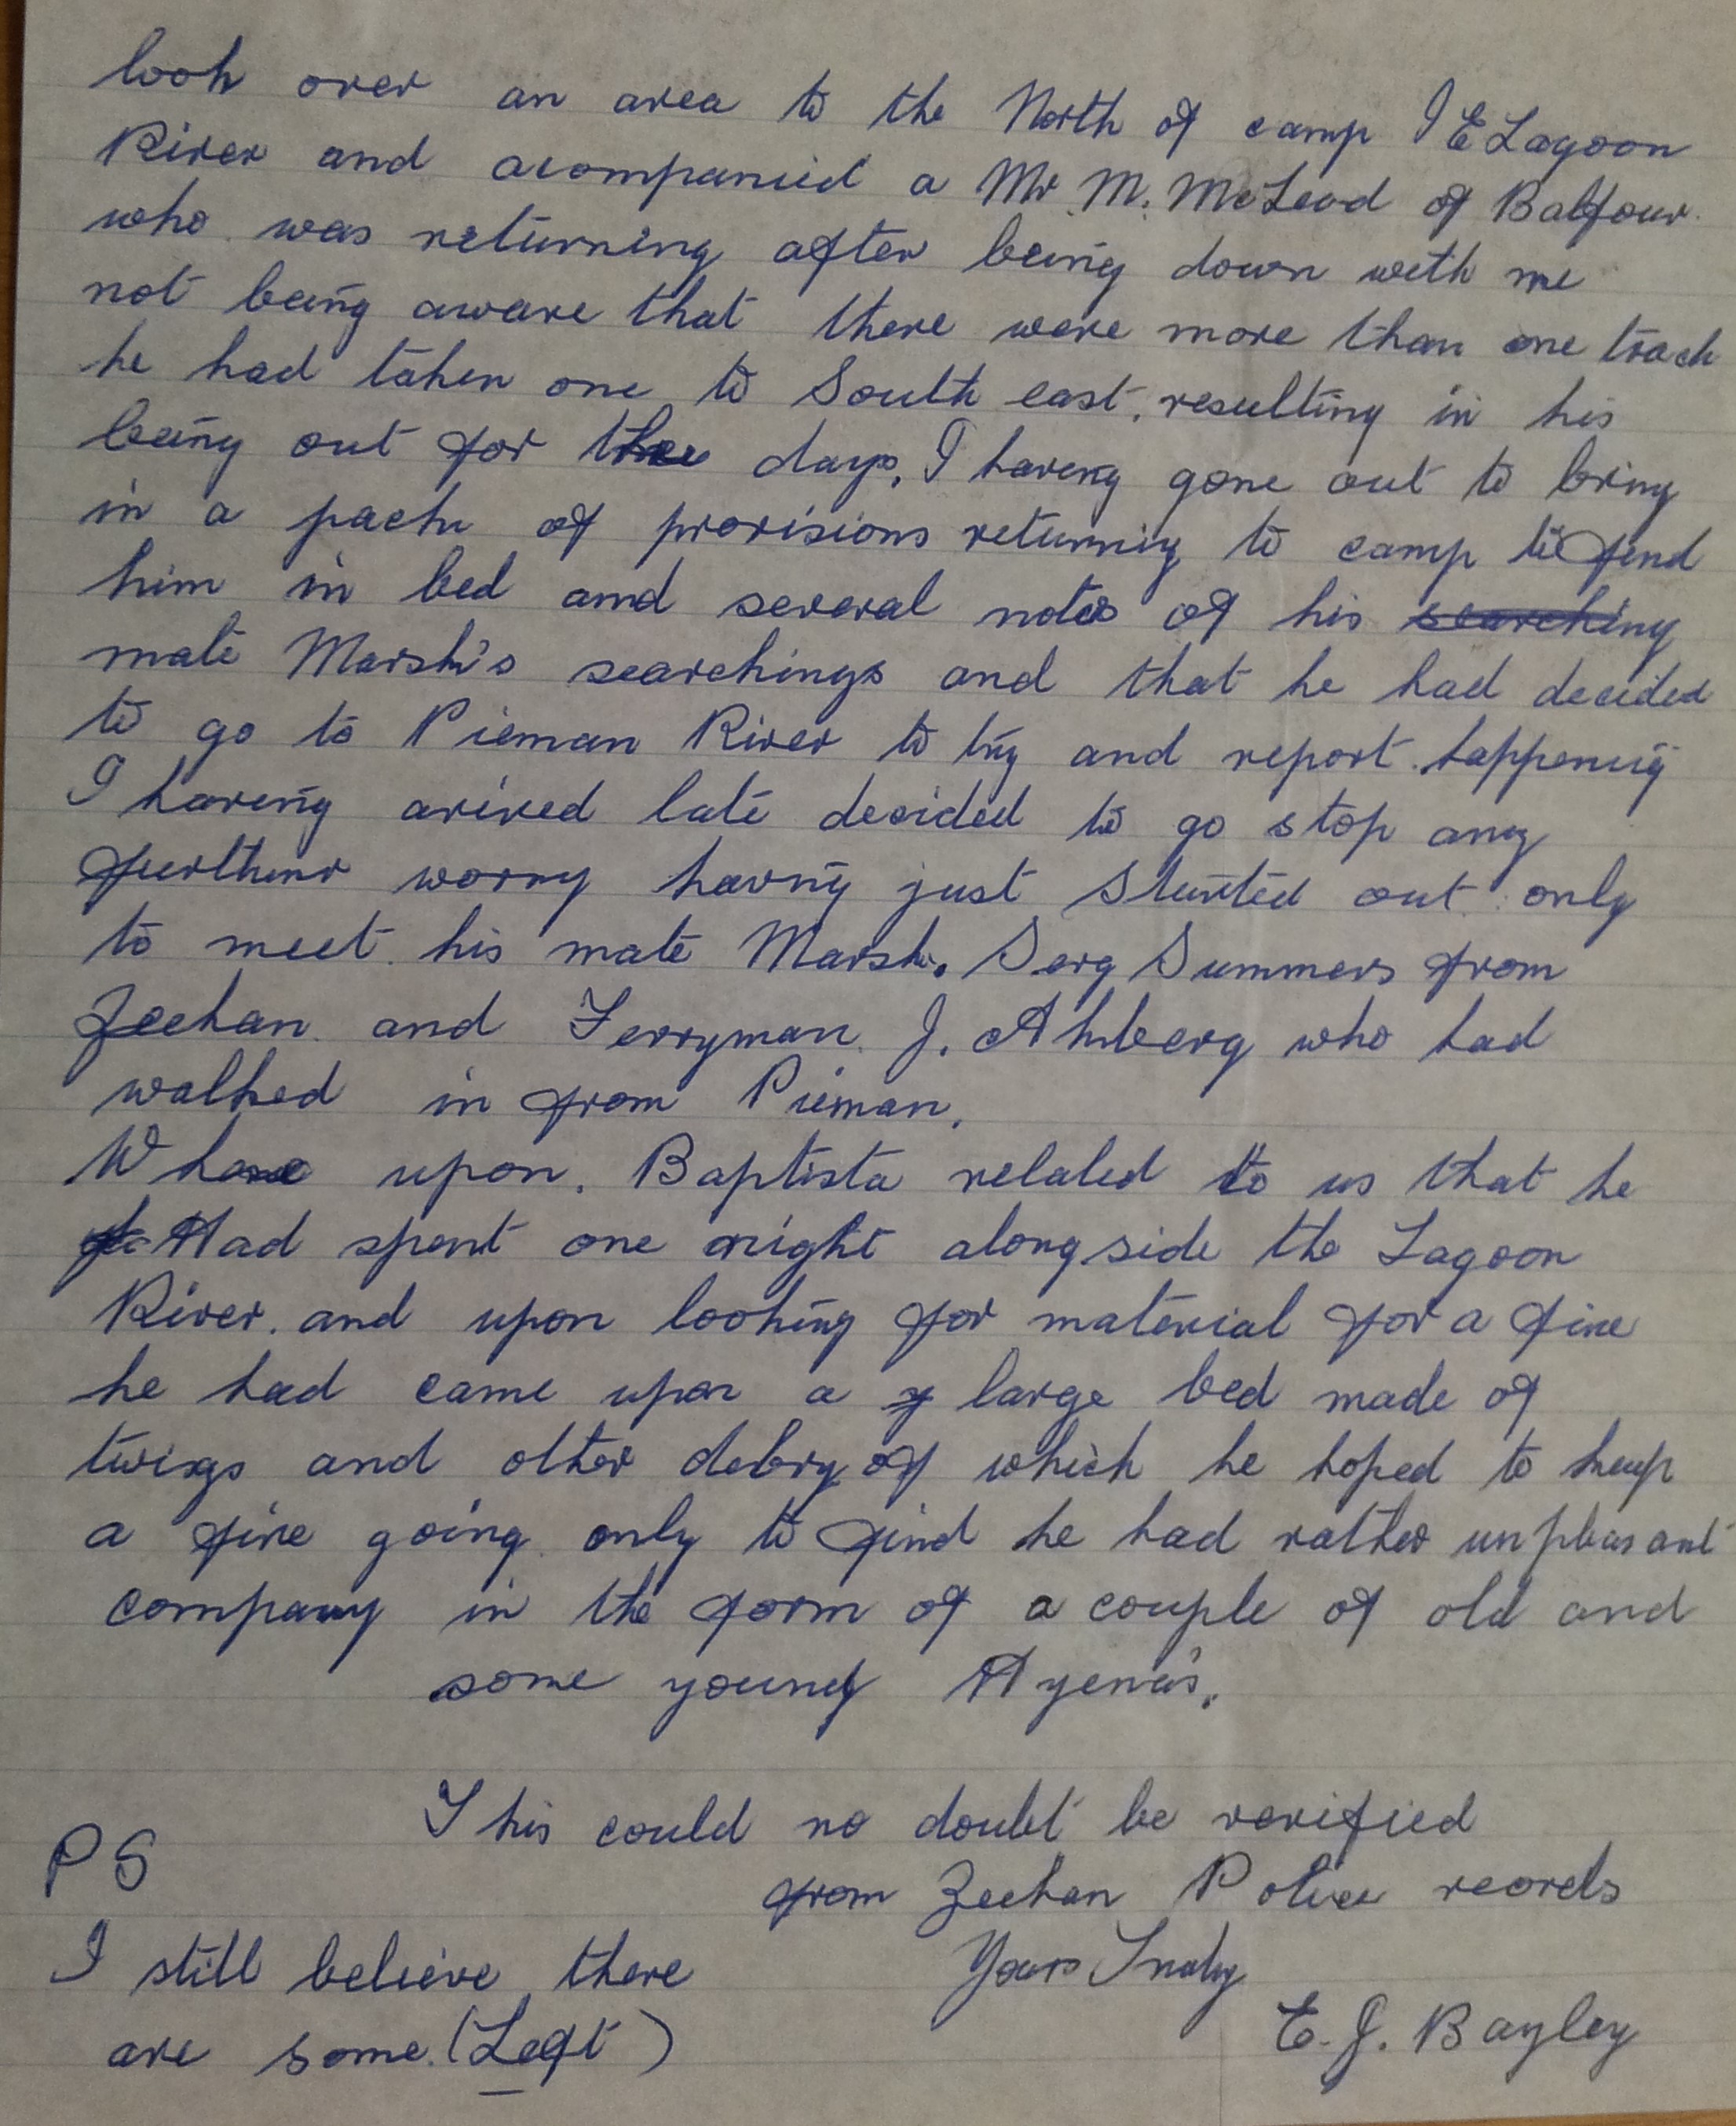 look over an area to the North of camp I E Lagoon
River and acompanied a Mr M. McLeod of Balfour
who was returning after being down with me
not being aware that there were more than one track
he had taken one to South east, resulting in his
being out for days, I having gone out to bring
in a pack of provisions returning to camp to find
him in bed and several notes of his searching
mate Marsh's searchings and that he had decided
to go to Pieman River to try and report happening
I having arived late decided to go stop any
furthur worry having just started out only
to meet his mate Marsh. Serg Summers from
Zeehan and Ferryman J. Ahlberg who had
walked in from Pieman.
upon. Baptista related to us that he
Had spent one night alongside the Lagoon
River. and upon looking for material for a fire
he had came upon a large bed made of
twigs and other debry of which he hoped to keep
a fire going only to find he had rather unpleasant
company in the form of a couple of old and
some young Hyena's.
This could no doubt be verified
from Zeehan Police records
Yours Truly
E. J. Bayley
PS
I still believe there
are some (Left)